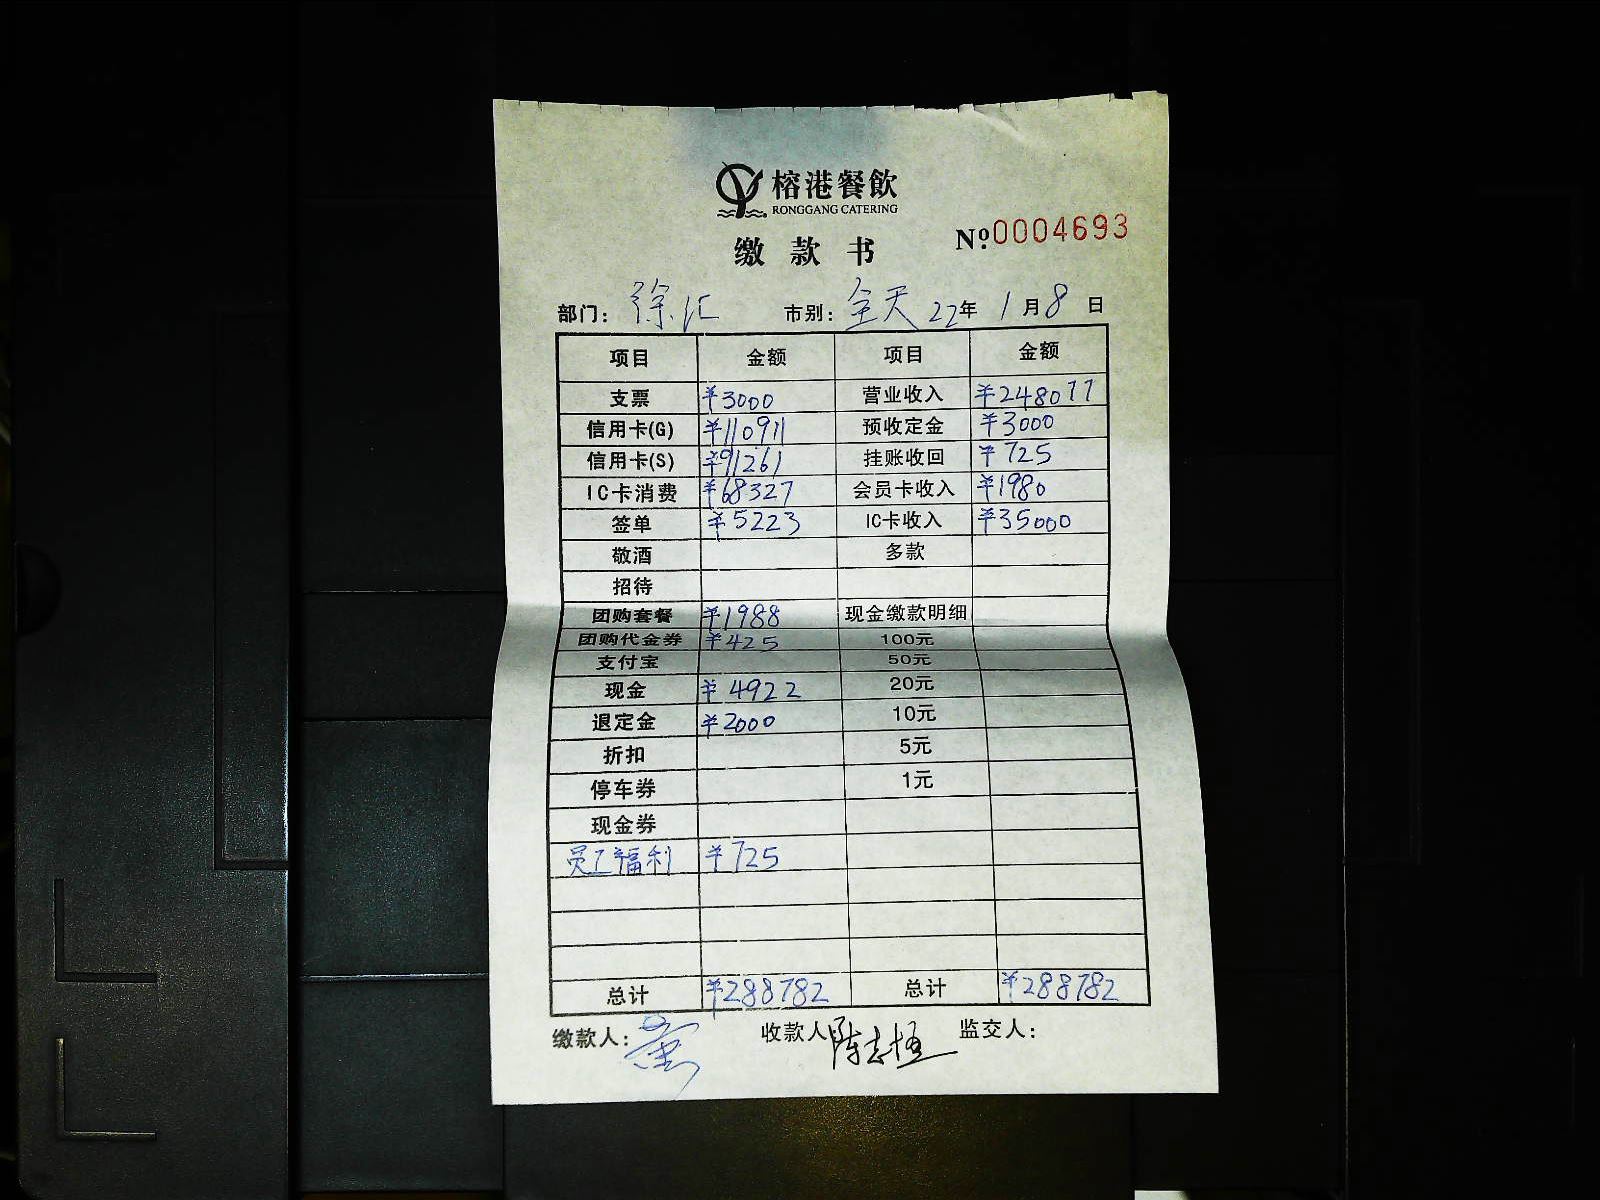 榕港餐飲
RONGGANG CATERING
缴款书 №0004693
部门: 徐汇 市别: 全天 22年 1月8日
项目 金额 项目 金额
支票 ¥3000 营业收入 ¥248077
信用卡(G) ¥110911 预收定金 ¥3000
信用卡(S) ¥91261 挂账收回 ¥725
IC卡消费 ¥68327 会员卡收入 ¥1980
签单 ¥5223 IC卡收入 ¥35000
敬酒 多款
招待
团购套餐 ¥1988 现金缴款明细
团购代金券 ¥425 100元
支付宝 50元
现金 ¥4922 20元
退定金 ¥2000 10元
折扣 5元
停车券 1元
现金券
员工福利 ¥725
总计 ¥288782 总计 ¥288782
缴款人: 收款人 陈志 监交人: